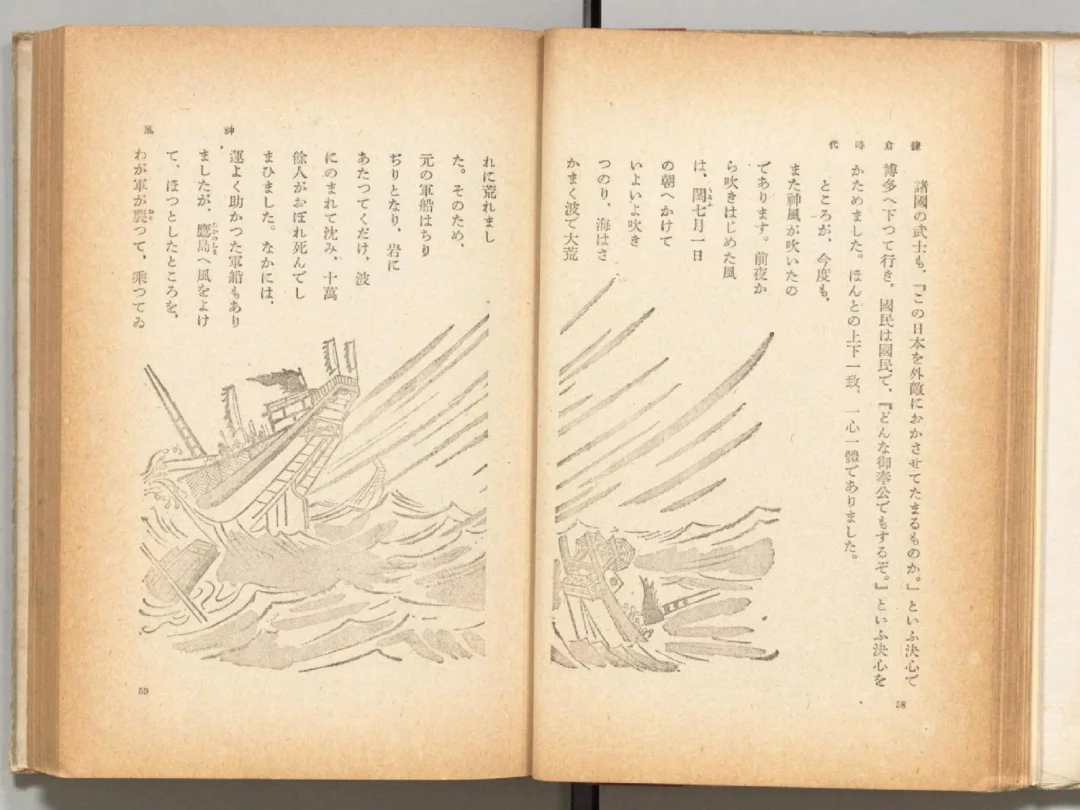 鎌倉時代
諸國の武士も、「この日本を外敵におかさせてたまるものか。」といふ決心で
博多へ下つて行き、國民は國民で、『どんな御奉公でもするぞ。』といふ決心を
かためました。ほんとの上下一致、一心一體でありました。
ところが、今度も、
また神風が吹いたの
であります。前夜か
ら吹きはじめた風
は、閏七月一日
の朝へかけて
いよいよ吹き
つのり、海はさ
かまく波で大荒
58
神風
れに荒れまし
た。そのため、
元の軍船はちり
ぢりとなり、岩に
あたつてくだけ、波
にのまれて沈み、十萬
餘人がおぼれ死んでし
まひました。なかには、
運よく助かつた軍船もあり
ましたが、鷹島へ風をよけ
て、ほつとしたところを、
わが軍が襲つて、乘つてゐ
59